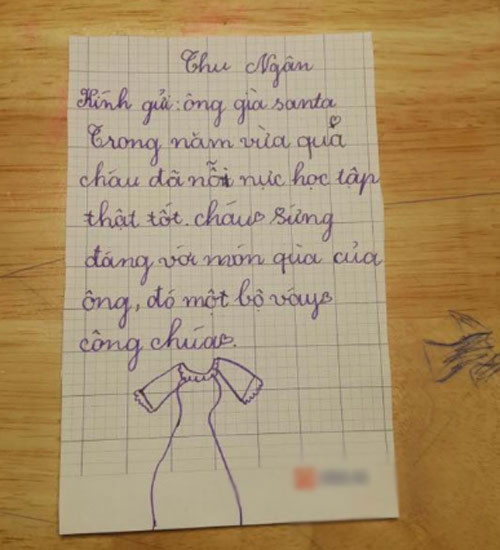 Thu Ngân
Kính gửi: ông già santa
Trong năm vừa quả
cháu đã nỗi nực học tập
thật tốt. cháu sứng
đáng với món qùa của
ông, đó một bộ váy
công chúa.